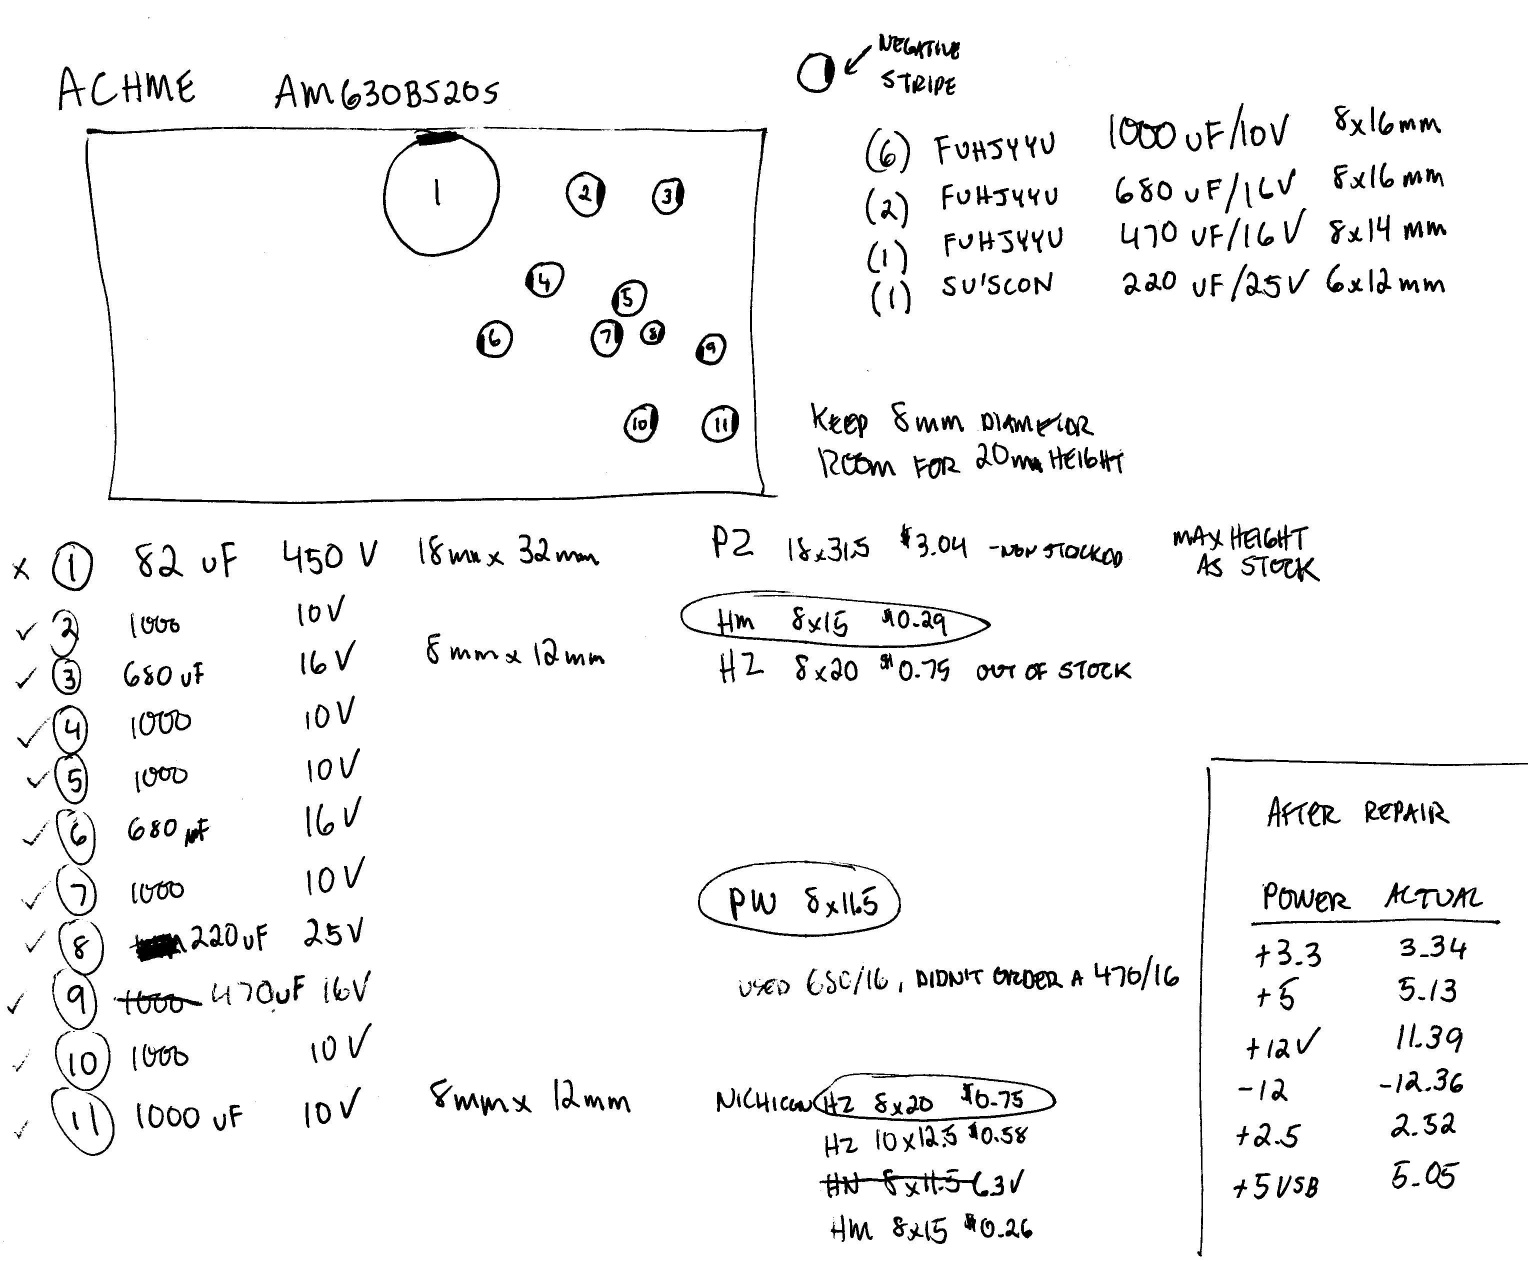 ACHME AM630BS20S
NEGATIVE
STRIPE
(6) FUHJYYU 1000 uF/10V 8x16mm
(2) FUHJYYU 680 uF/16V 8x16mm
(1) FUHJYYU 470 uF/16V 8x14mm
(1) SU'SCON 220 uF/25V 6x12mm
1
2
3
4
5
6
7
8
9
10
11
KEEP 8mm DIAMETOR
ROOM FOR 20mm HEIGHT
x 1 82 uF 450V 18mm x 32mm PZ 18x31.5 $3.04 - NON STOCKED MAX HEIGHT
AS STOCK
✓ 2 1000 10V HM 8x15 $0.29
✓ 3 680 uF 16V 8mm x 12mm HZ 8x20 $0.75 OUT OF STOCK
✓ 4 1000 10V
✓ 5 1000 10V
✓ 6 680 uF 16V
✓ 7 1000 10V PW 8x11.5
✓ 8 220uF 25V
✓ 9 1000 470uF 16V USED 680/16, DIDN'T ORDER A 470/16
✓ 10 1000 10V
✓ 11 1000 uF 10V 8mm x 12mm NICHICON HZ 8x20 $0.75
HZ 10x12.5 $0.58
HN 8x11.5 6.3V
HM 8x15 $0.26
AFTER REPAIR
POWER ACTUAL
+3.3 3.34
+5 5.13
+12V 11.39
-12 -12.36
+2.5 2.52
+5VSB 5.05